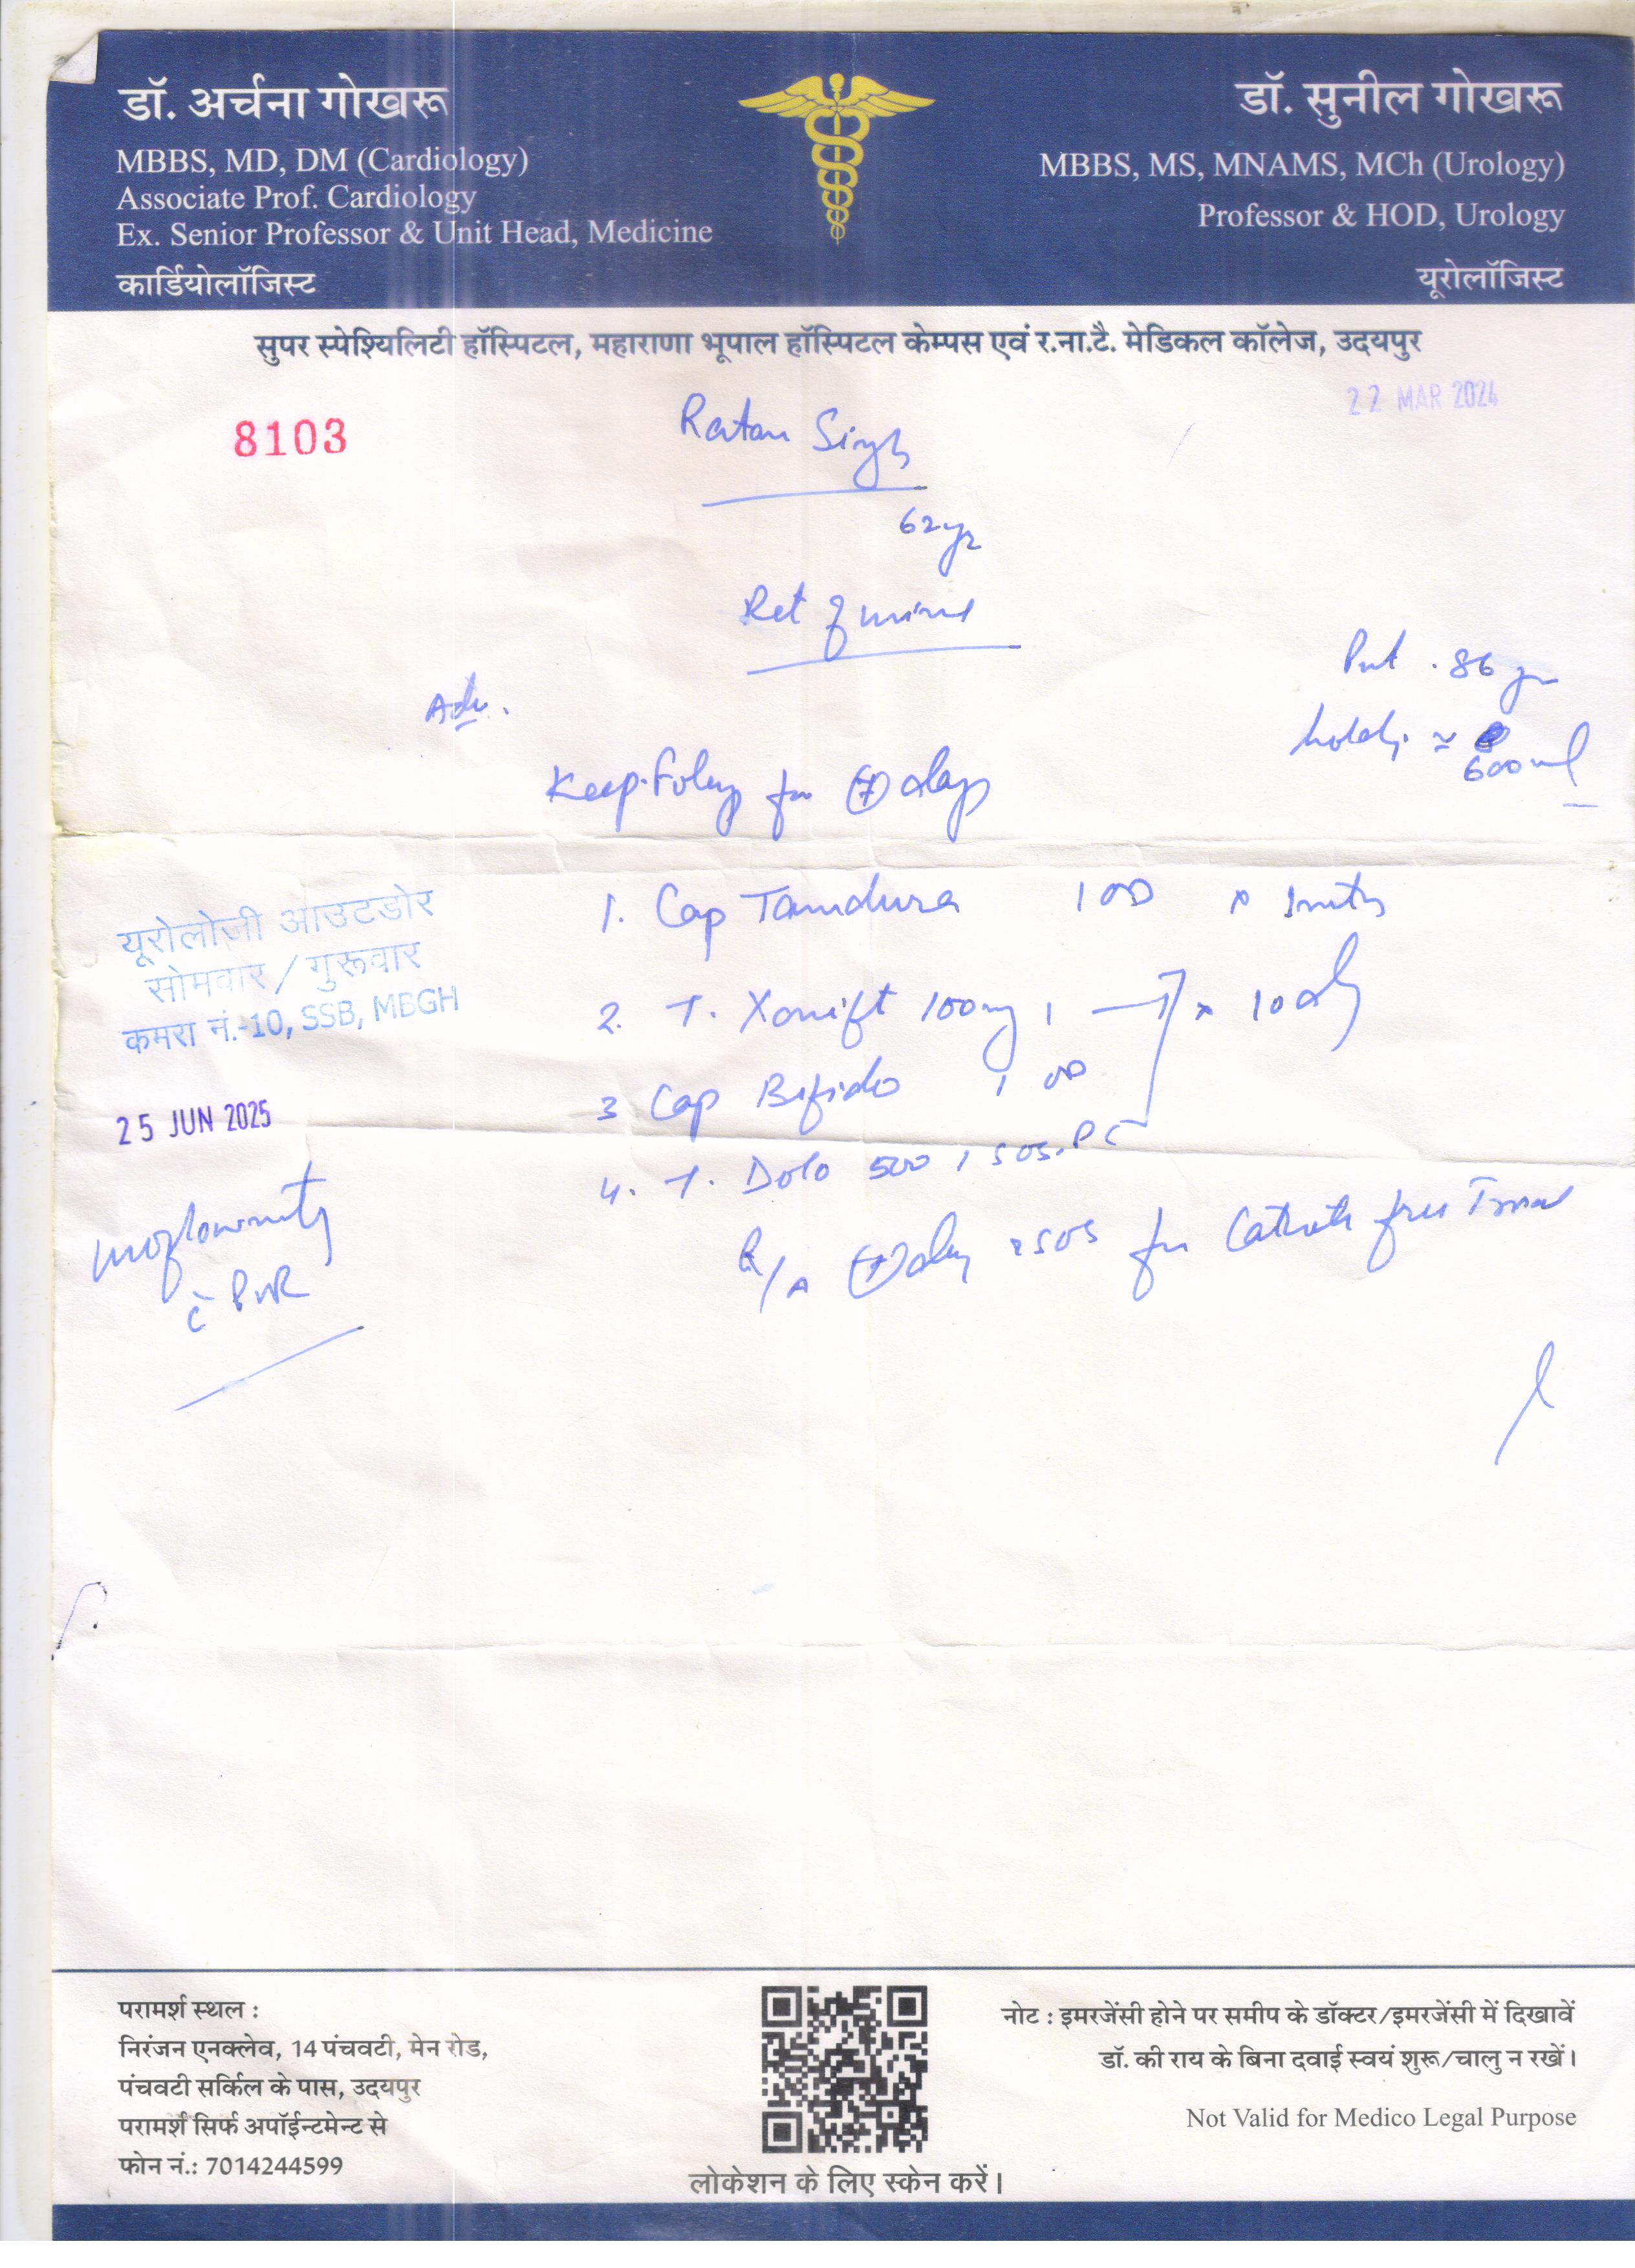 डॉ. अर्चना गोखरू
MBBS, MD, DM (Cardiology)
Associate Prof. Cardiology
Ex. Senior Professor & Unit Head, Medicine
कार्डियोलॉजिस्ट
डॉ. सुनील गोखरू
MBBS, MS, MNAMS, MCh (Urology)
Professor & HOD, Urology
यूरोलॉजिस्ट
सुपर स्पेश्यिलिटी हॉस्पिटल, महाराणा भूपाल हॉस्पिटल केम्पस एवं र.ना.टै. मेडिकल कॉलेज, उदयपुर
22 MAR 2024
8103
Ratan Singh
62yr
Ret of urine
86 gm
Adv.
600 ml
Keep Foley for (7) days
1. Cap Tamdura 1 OD x 1 mth
2. T. Xonift 100mg 1 x 10 dy
3 Cap Bifido 1 OD
4. T. Dolo 500 1 SOS. PC
R/A (7) day SOS for Catheter free Trial
यूरोलोजी आउटडोर
सोमवार / गुरूवार
कमरा नं.-10, SSB, MBGH
25 JUN 2025
uroflowmetry
c̄ PVR
परामर्श स्थल :
निरंजन एनक्लेव, 14 पंचवटी, मेन रोड,
पंचवटी सर्किल के पास, उदयपुर
परामर्श सिर्फ अपॉईन्टमेन्ट से
फोन नं.: 7014244599
लोकेशन के लिए स्केन करें।
नोट : इमरजेंसी होने पर समीप के डॉक्टर/इमरजेंसी में दिखावें
डॉ. की राय के बिना दवाई स्वयं शुरू/चालु न रखें।
Not Valid for Medico Legal Purpose